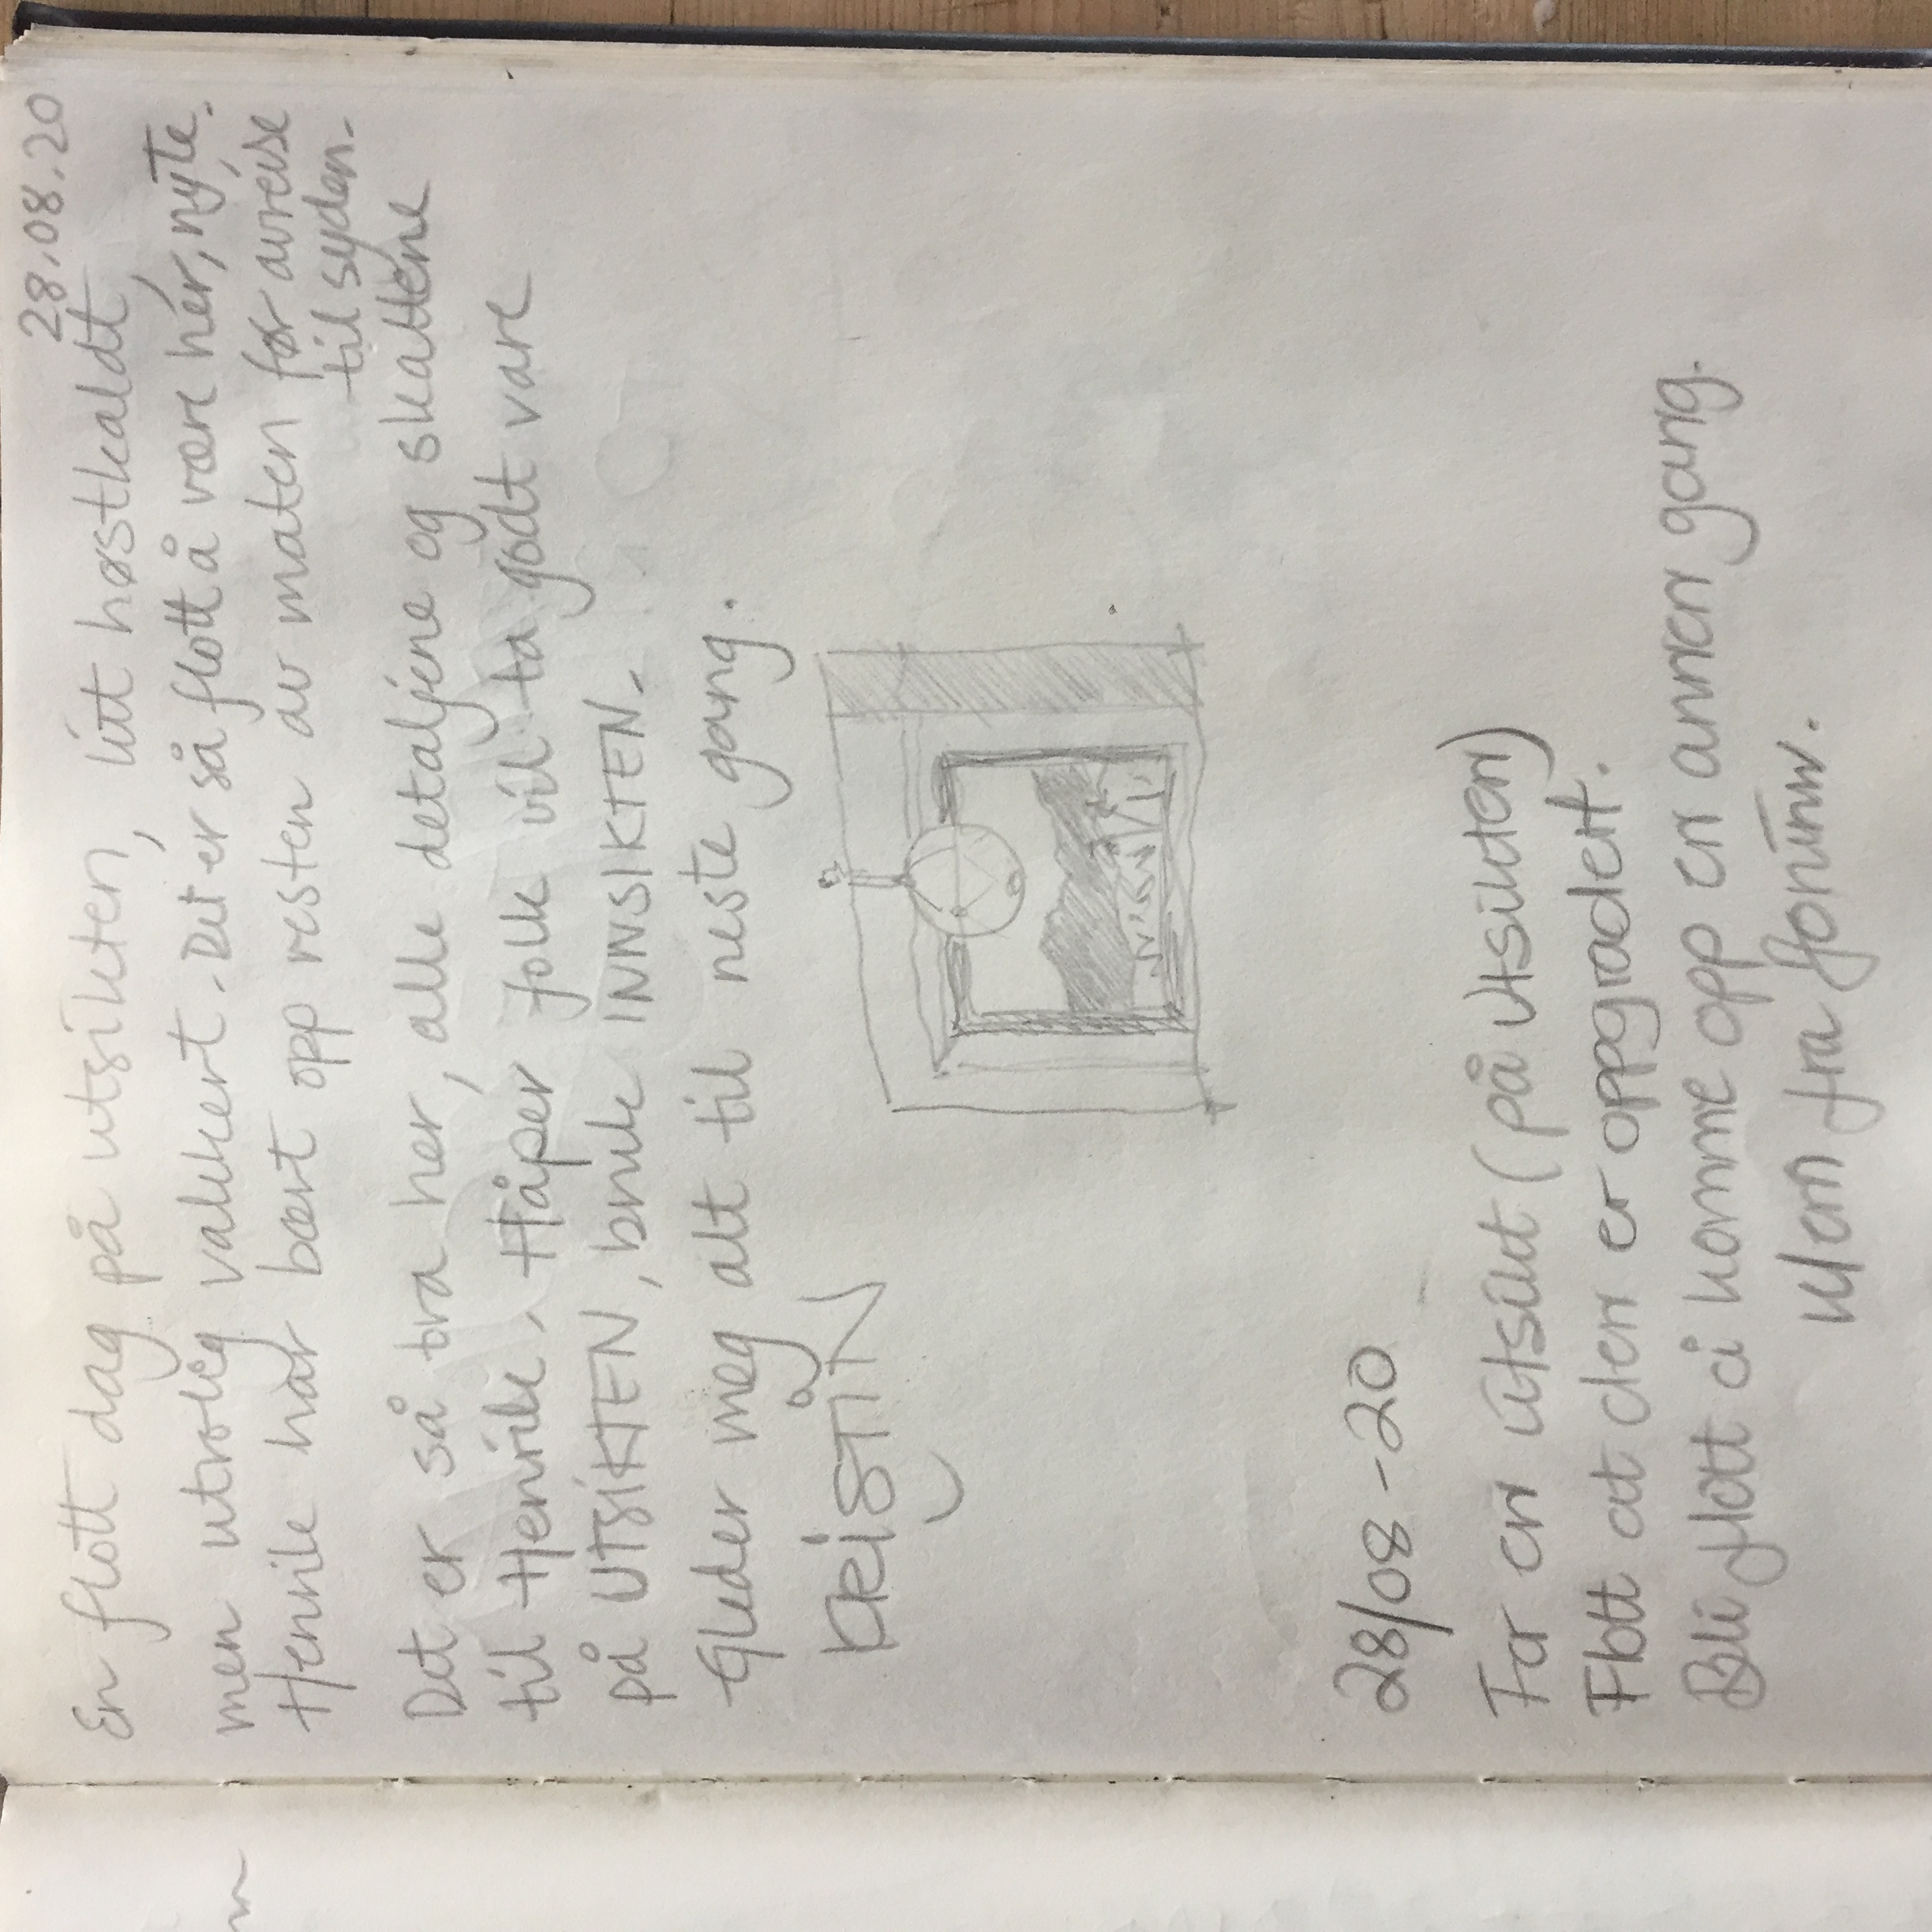 28.08.20
En flott dag på utsikten, litt høstkaldt,
men utrolig vakkert. Det er så flott å være her, nyte.
Henrik har bært opp resten av maten før avreise
til syden.
Det er så bra her, alle detaljene og skattene
til Henrik. Håper folk vil ta godt vare
på UTSIKTEN, bruk INNSIKTEN.
Gleder meg alt til neste gang.
KRISTIN
28/08-20
For en utsikt (på utsikten)
Flott at den er oppgradert.
Bli flott å komme opp en annen gang
fra